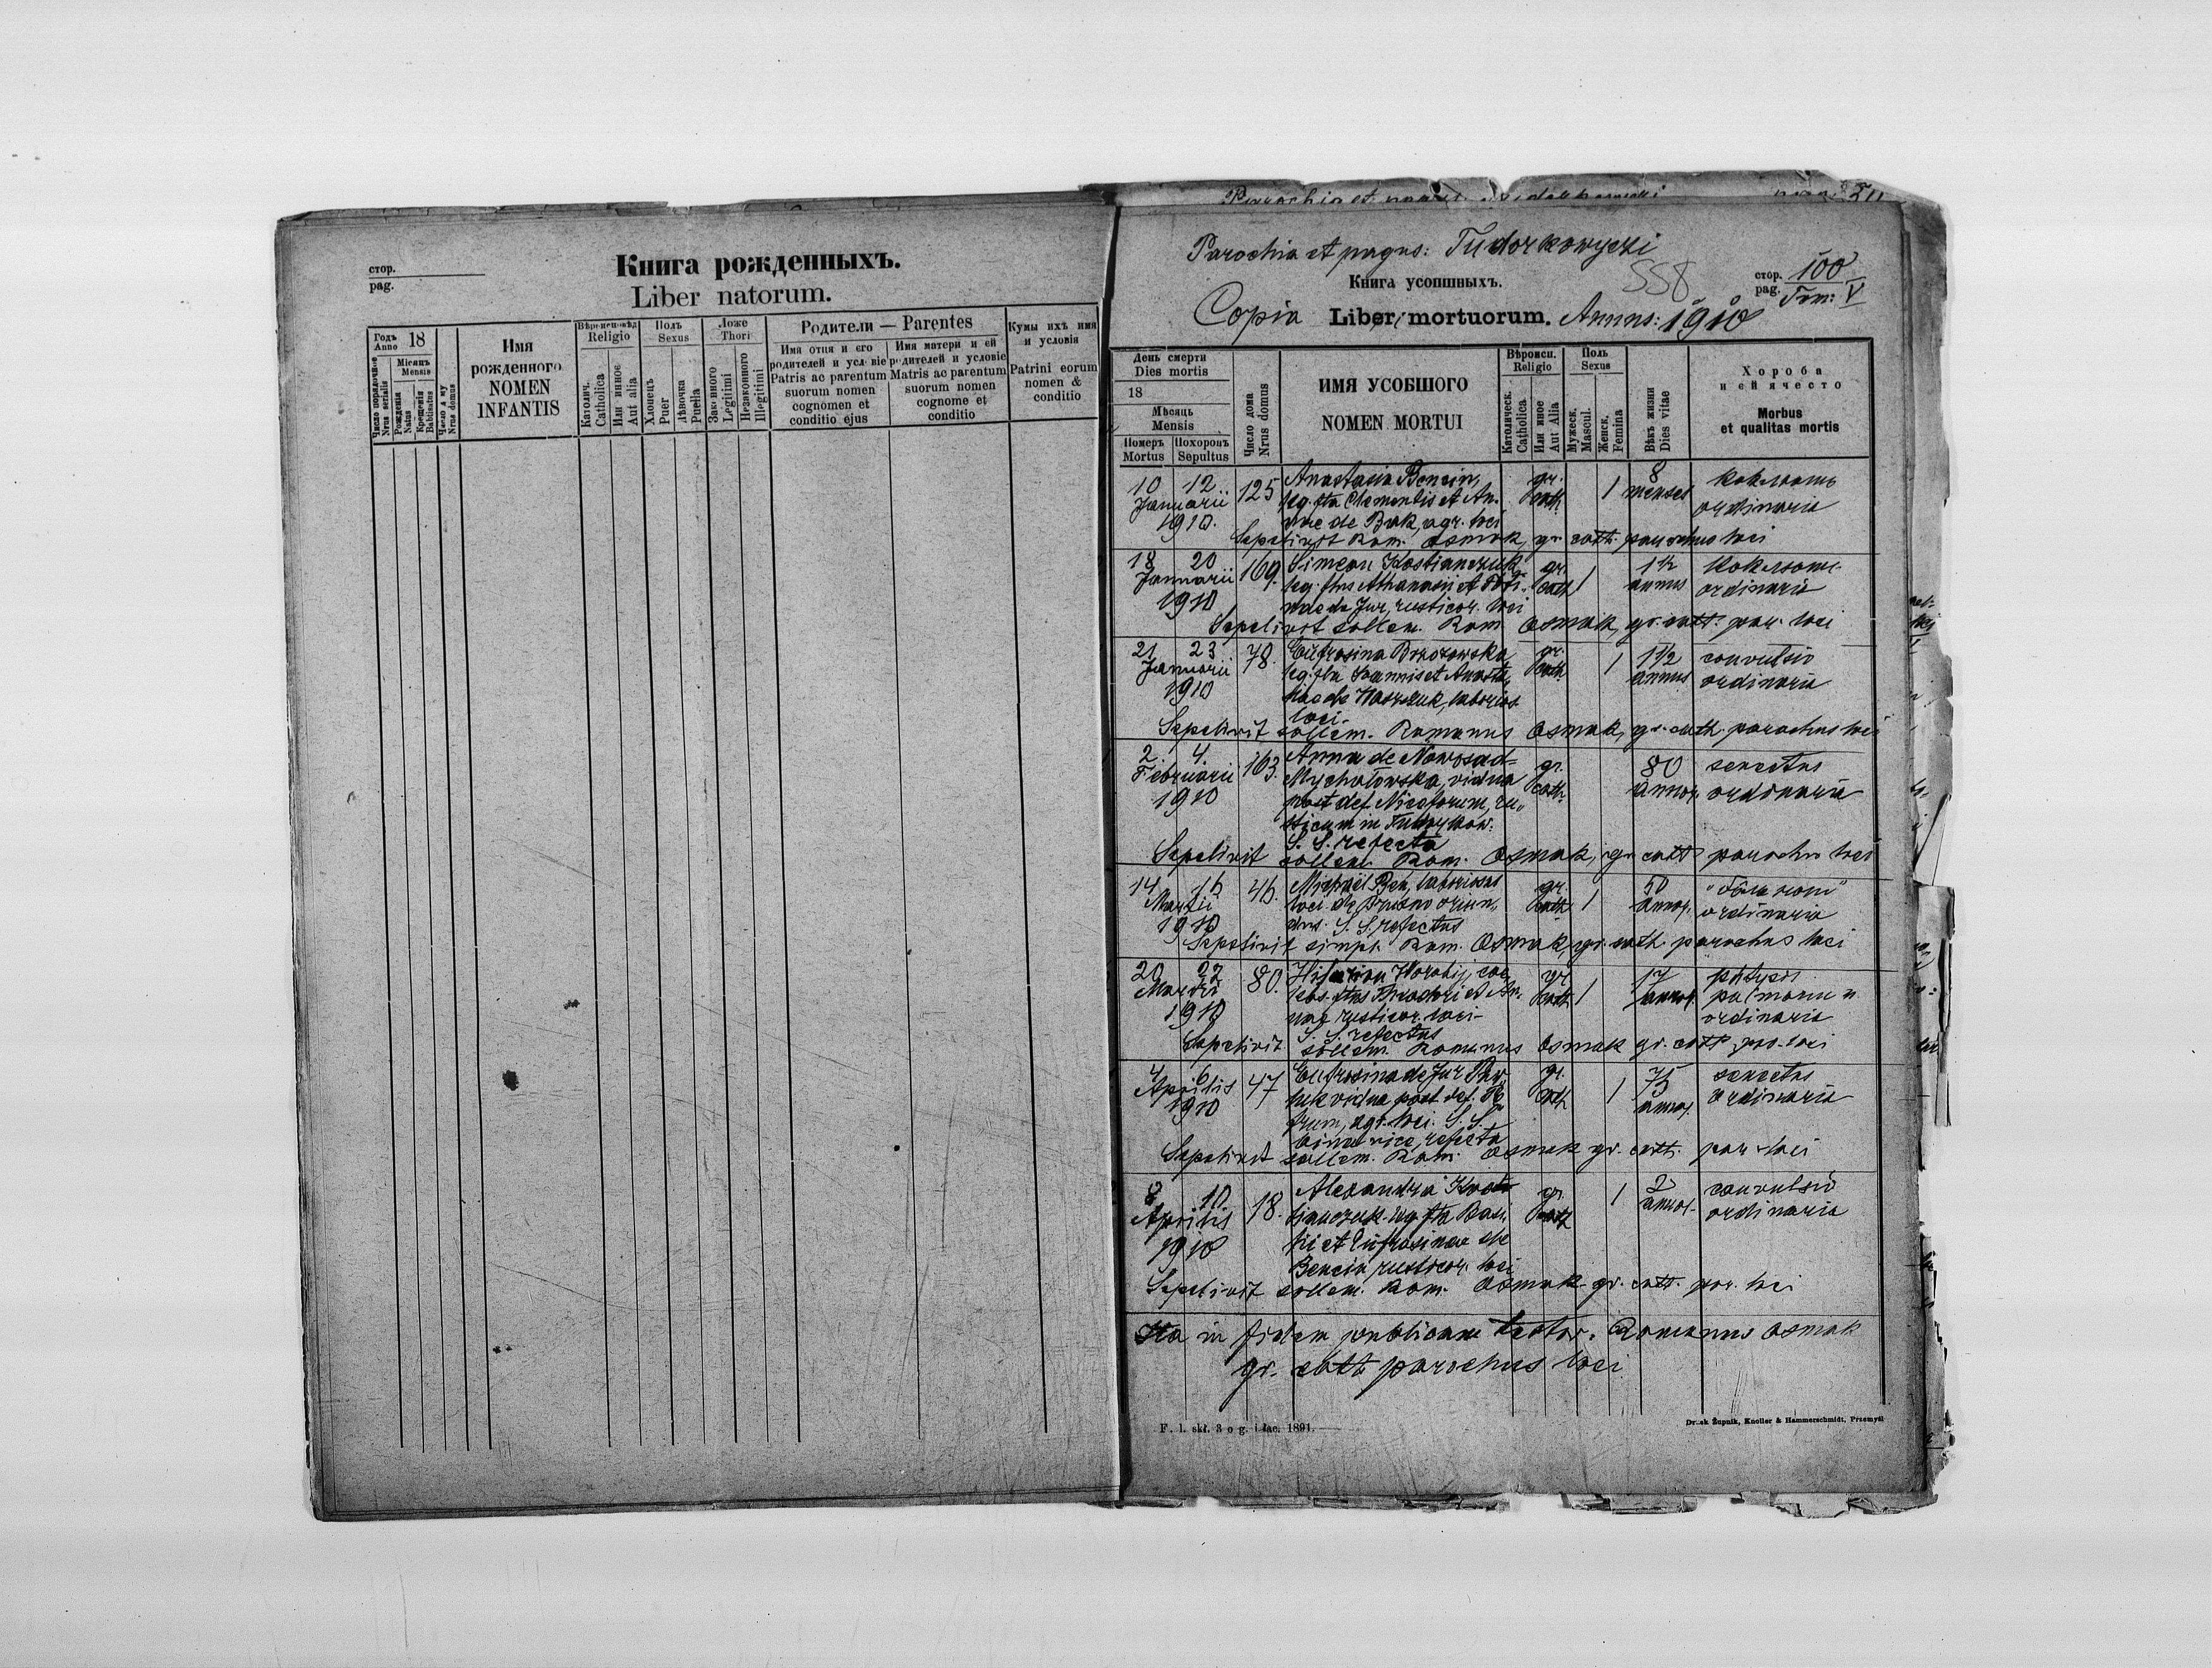 стор.
pag.
Книга рожденныхъ.
Liber natorum.
Годъ Anno 18
Число порядочное Nrus serialis
Мѣсяцъ Mensis
Рожденія Natus
Крещенія Babtisatus
Число дому Nrus domus
Имя рожденного
NOMEN INFANTIS
Вѣроисповѣд Religio
Католич. Catholica
Или инное Aut alia
Полъ Sexus
Хлопецъ Puer
Дѣвочка Puella
Ложе Thori
Законного Legitimi
Незаконного Illegitimi
Родители — Parentes
Имя отца и его
родителей и условіе
Patris ac parentum
suorum nomen
cognomen et
conditio ejus
Имя матери и ей
родителей и условіе
Matris ac parentum
suorum nomen
cognome et
conditio
Кумы ихъ имя
и условія
Patrini eorum
nomen &
conditio
Parochia et pagus: Tudorkowyczi
558
Книга усопшныхъ.
стор. pag. 100
Tom: V
Copia Libri mortuorum. Annus: 1910
День смерти
Dies mortis
18
Мѣсяць
Mensis
Номеръ Mortus
Похоронъ Sepultus
Число дома Nrus domus
ИМЯ УСОБШОГО
NOMEN MORTUI
Вѣроисп. Religio
Католическ. Catholica
Или инное Aut Alia
Поль Sexus
Мужеск. Mascul.
Женск. Femina
Вѣкъ жизни Dies vitae
Хороба
и ей ячесто
Morbus
et qualitas mortis
10 12 125 Anastasia Bencin, gr. 1 8 коклюшъ
Januarii leg. fta Clementis et An- cath. menses ordinaria
1910. nae de Buk, agr. loci
Sepelivit Rom. Osmak, gr. cath. parochus loci
18 20 169. Simeon Kostianczuk gr. 1 1½ коклюшъ
Januarii leg. ftus Athanasii et cath annus ordinaria
1910 nae de Jur, rusticor. loci
Sepelivit sollem. Rom. Osmak, gr. cath. par. loci
21 23 78. Eufrosina Brzozowska gr. 1 1½ convulsio
Januarii leg. fta Joannis et Anasta- cath. annus ordinaria
1910 siae de laborios
loci-
Sepelivit sollem. Romanus Osmak, gr. cath. parochus loci
2. 4. 163. Anna de Nowosad- gr. 80 senectus
Februarii Mychałowska, vidua cath. annor. ordinaria
1910 post def. Niceforum, ru-
sticum in Tudorkow.
S. S. refecta
Sepelivit sollem. Rom. Osmak, gr. cath. parochus loci
14 16 46. Michael Bek, laboriosus gr. 1 50
Martii loci de oriun- cath annor. ordinaria
1910 dus. S. S. refectus
Sepelivit simpl. Rom. Osmak, gr. cath. parochus loci
20 22 80. Hilarion Horobij, coe- gr 1 17 phtysis
Martii lebs. ftus Theodori et An- cath annor. pulmonum
1910 nae rusticor. loci- ordinaria
S. S. refectus
Sepelivit sollem. Romanus Osmak gr. cath par. loci
4 6 47 Eufrosina de Jur Paw- gr. 1 75 senectus
Aprilis luk vidua post def. Pe- cath annor. ordinaria
1910 trum, agr. loci. S. S.
bina vice refecta
Sepelivit sollem. Rom. Osmak gr. cath. par. loci
8 10 18. Alexandra Kost- gr. 1 2 convulsio
Aprilis tianczuk leg fta Basi- cath annor. ordinaria
1910 lii et Eufrosinae de
Bencin rusticor. loci
Sepelivit sollem. Rom. Osmak gr. cath. par. loci
Ita in fidem publicam testor. Romanus Osmak
gr. cath parochus loci
F. l. skł. 3 o g. i łac. 1891.
Druk Żupnik, Knoller & Hammerschmidt, Przemyśl